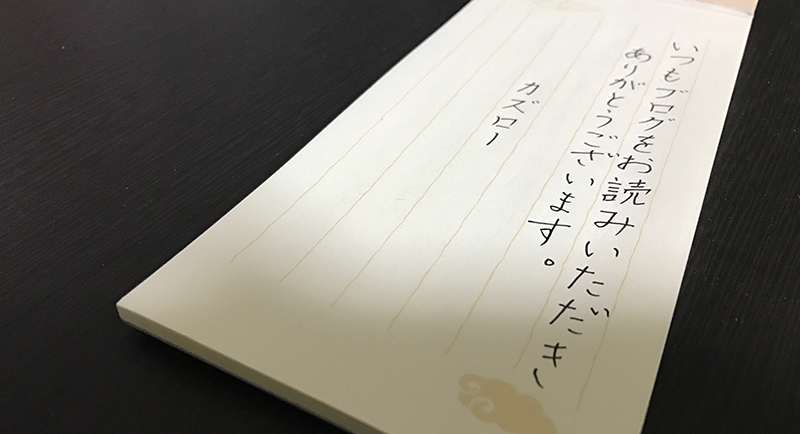 いつもブログをお読みいただき
ありがとうございます。
カズロー